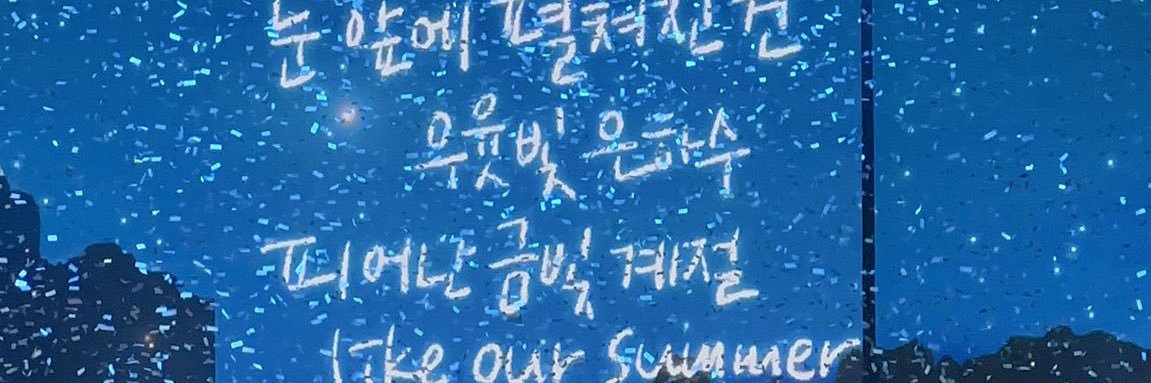 눈 앞에 펼쳐진 건
우윳빛 은하수
피어난 금빛 계절
like our summer